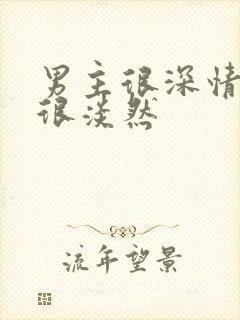 男主很深情
很淡然
流年望景